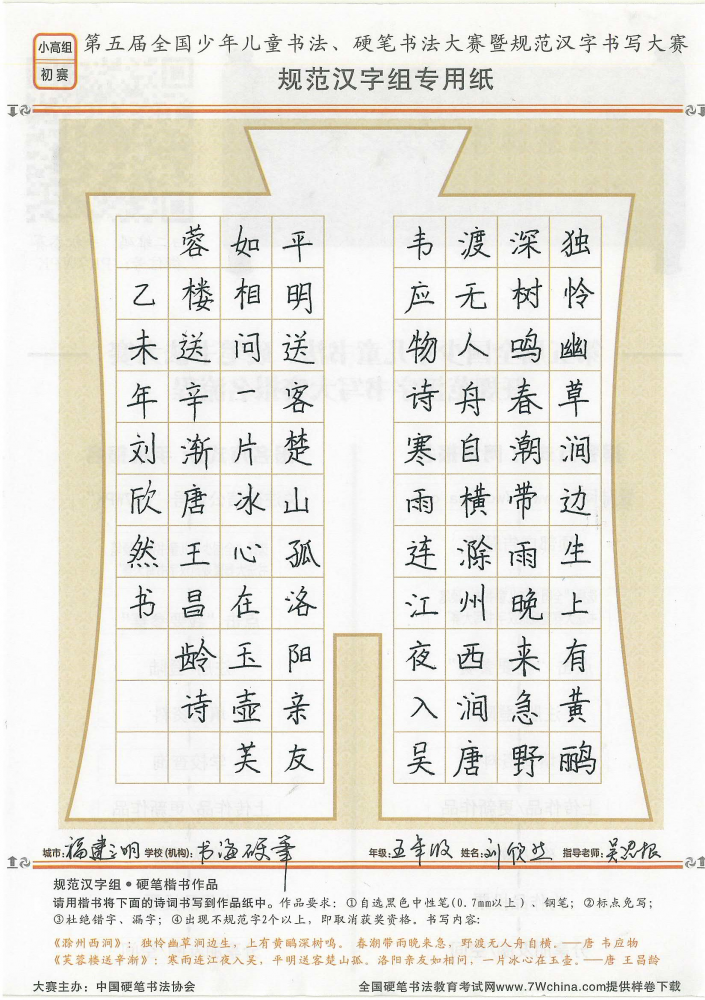 小高组
初赛
第五届全国少年儿童书法、硬笔书法大赛暨规范汉字书写大赛
规范汉字组专用纸
独怜幽草涧边生上有黄鹂
深树鸣春潮带雨晚来急野
渡无人舟自横滁州西涧唐
韦应物诗寒雨连江夜入吴
平明送客楚山孤洛阳亲友
如相问一片冰心在玉壶芙
蓉楼送辛渐唐王昌龄诗
乙未年刘欣然书
城市：福建三明 学校(机构)：书海硬筆 年级：五年级 姓名：刘欣然 指导老师：吴
规范汉字组●硬笔楷书作品
请用楷书将下面的诗词书写到作品纸中。作品要求：①自选黑色中性笔(0.7mm以上)、钢笔；②标点免写；
③杜绝错字、漏字；④出现不规范字2个以上，即取消获奖资格。书写内容：
《滁州西涧》：独怜幽草涧边生，上有黄鹂深树鸣。春潮带雨晚来急，野渡无人舟自横。——唐 韦应物
《芙蓉楼送辛渐》：寒雨连江夜入吴，平明送客楚山孤。洛阳亲友如相问，一片冰心在玉壶。——唐 王昌龄
大赛主办：中国硬笔书法协会 全国硬笔书法教育考试网www.7Wchina.com提供样卷下载